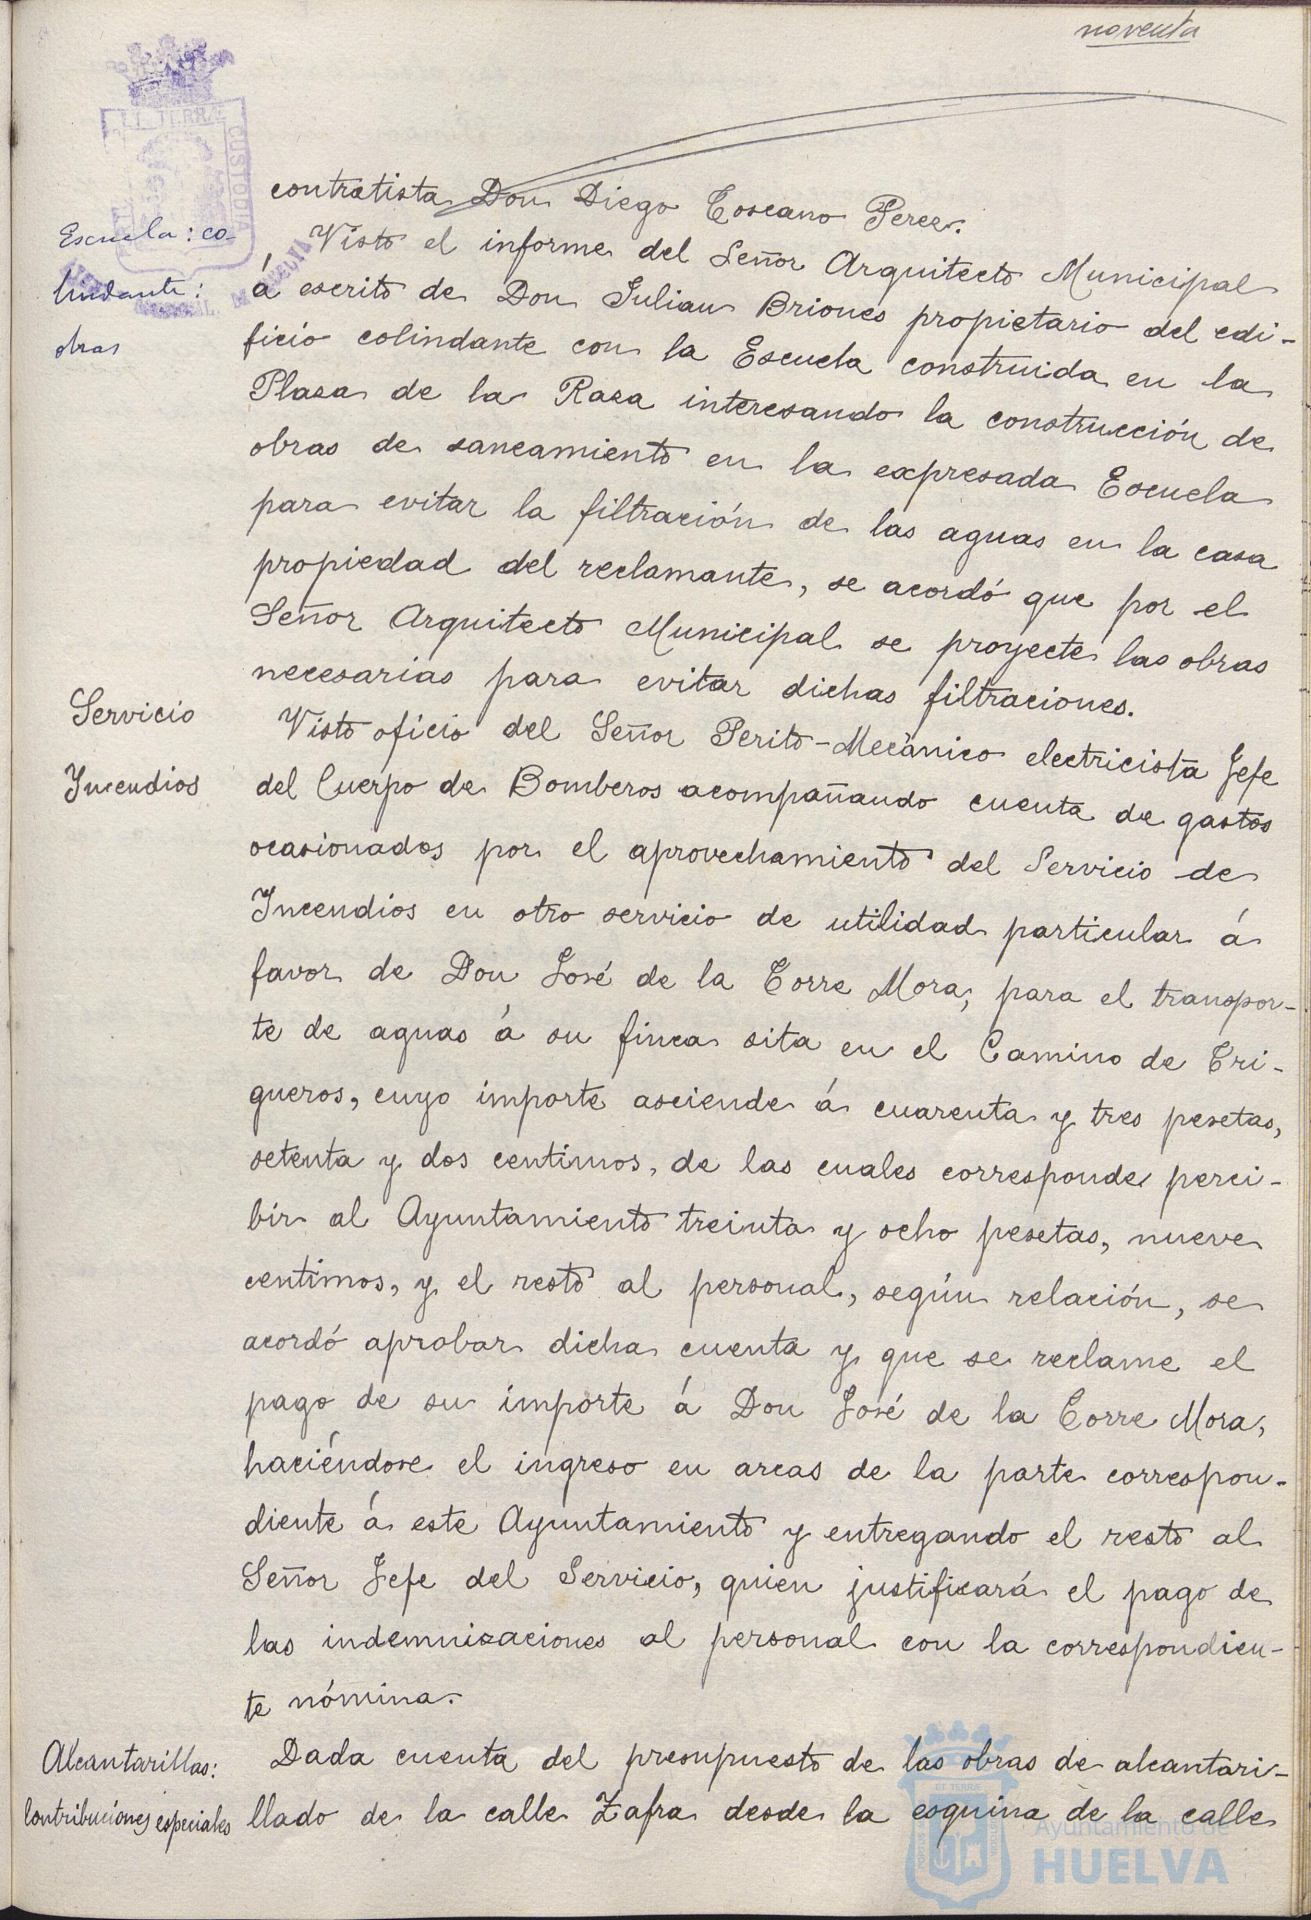 noventa
contratista Don Diego Toscano Perez.
Escuela: co-
lindante:
obras
Visto el informe del Señor Arquitecto Municipal
á escrito de Don Julian Briones propietario del edi-
ficio colindante con la Escuela construida en la
Plaza de la Raza interesando la construcción de
obras de saneamiento en la expresada Escuela
para evitar la filtración de las aguas en la casa
propiedad del reclamante, se acordó que por el
Señor Arquitecto Municipal se proyecte las obras
necesarias para evitar dichas filtraciones.
Servicio
Incendios
Visto oficio del Señor Perito-Mecànico electricista Jefe
del Cuerpo de Bomberos acompañando cuenta de gastos
ocasionados por el aprovechamiento del Servicio de
Incendios en otro servicio de utilidad particular á
favor de Don José de la Torre Mora, para el transpor-
te de aguas á su finca sita en el Camino de Tri-
gueros, cuyo importe asciende á cuarenta y tres pesetas,
setenta y dos centimos, de las cuales corresponde perci-
bir al Ayuntamiento treinta y ocho pesetas, nueve
centimos, y el resto al personal, según relación, se
acordó aprobar dicha cuenta y que se reclame el
pago de su importe á Don José de la Torre Mora,
haciéndose el ingreso en arcas de la parte correspon-
diente á este Ayuntamiento y entregando el resto al
Señor Jefe del Servicio, quien justificará el pago de
las indemnizaciones al personal con la correspondien-
te nómina.
Alcantarillas:
Contribuciones especiales
Dada cuenta del presupuesto de las obras de alcantari-
llado de la calle Zafra desde la esquina de la calle
Ayuntamiento de
HUELVA